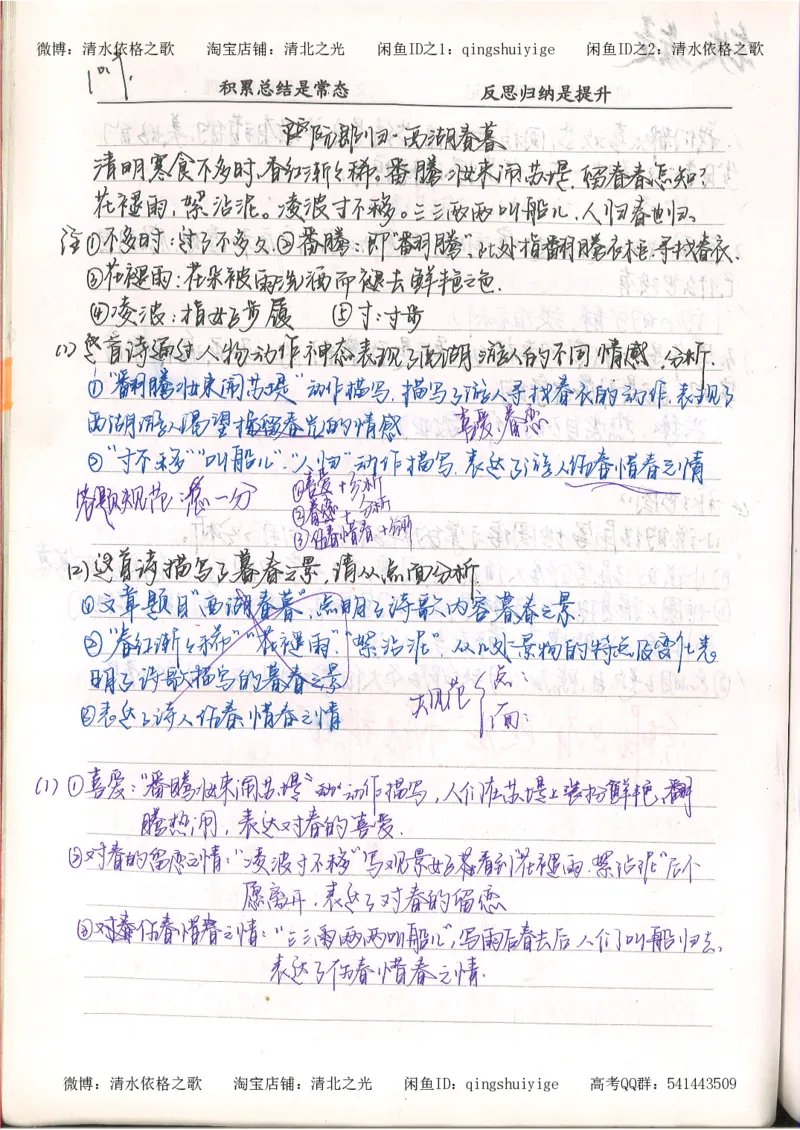 微博：清水依格之歌 淘宝店铺：清北之光 闲鱼ID之1：qingshuiyige 闲鱼ID之2：清水依格之歌
积累总结是常态 反思归纳是提升
阮郎归·西湖春暮
清明寒食不多时，香红渐渐稀。番腾妆束闹苏堤，留春春怎知？
花褪雨，絮沾泥。凌波寸不移。三三两两叫船儿，人归春也归。
注①不多时：过了不多久②番腾：即"翻腾"，此处指翻腾衣柜，寻找春衣.
③花褪雨：花朵被雨洗洒而褪去鲜艳之色.
④凌波：指女子步履 ⑤寸：寸步
(1)这首诗通过人物动作神态表现了西湖游人的不同情感，分析.
①"翻腾妆束闹苏堤"动作描写，描写了游人寻找春衣的动作，表现了
西湖游人渴望挽留春光的情感 喜爱，眷恋
②"寸不移""叫船儿"、"人归"动作描写，表达了游人伤春惜春之情
答题规范：
①喜爱+分析
②眷恋+分析
③伤春惜春+分析
(2)这首诗描写了暮春之景，请从点面分析.
①文章题目"西湖春暮"，点明了诗歌内容暮春之景.
②"春红渐渐稀""花褪雨"、"絮沾泥"从几处景物的特点及变化表
明了诗歌描写的暮春之景
③表达了诗人伤春惜春之情
规范 点：
面：
(1)①喜爱："番腾妆束闹苏堤"动作描写，人们在苏堤上装扮鲜艳，翻
腾热闹，表达对春的喜爱.
②对春的留恋之情："凌波寸不移"写观景女子看到"花褪雨，絮沾泥"后不
愿离开，表达了对春的留恋
③对春伤春惜春之情："三三两两叫船儿"，写雨后春去后人们叫船归去，
表达了伤春惜春之情.
微博：清水依格之歌 淘宝店铺：清北之光 闲鱼ID：qingshuiyige 高考QQ群：541443509